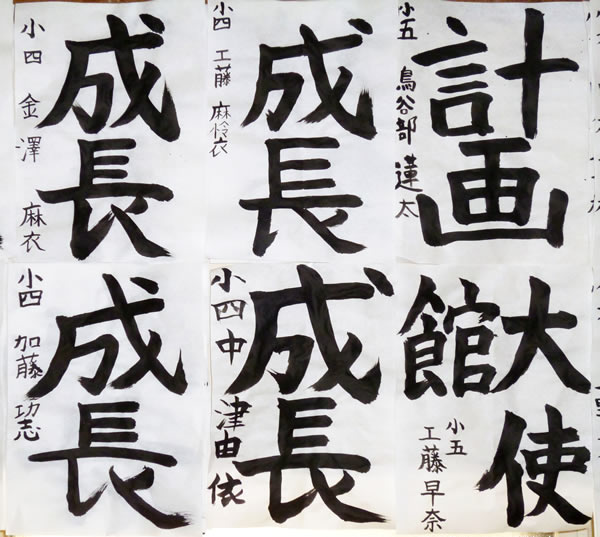 成長
小四 金澤 麻衣
成長
小四 工藤 麻怜衣
計画
小五 鳥谷部 蓮太
成長
小四 加藤 功志
成長
小四 中津由依
大使
館
小五
工藤早奈